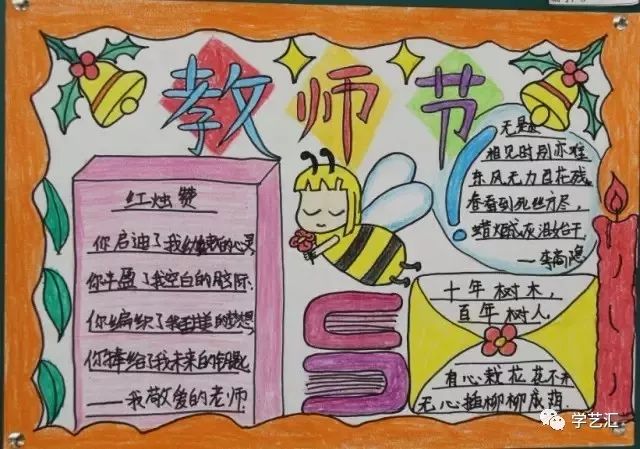 教师节
红烛赞
你启迪了我幼稚的心灵
你丰盈了我空白的脑际
你编织了我甜美的梦想
你捧给了我未来的钥匙
——我敬爱的老师
无题
相见时别亦难
东风无力百花残
春蚕到死丝方尽，
蜡炬成灰泪始干。
——李商隐
十年树木，
百年树人
有心栽花花不开
无心插柳柳成荫
学艺汇